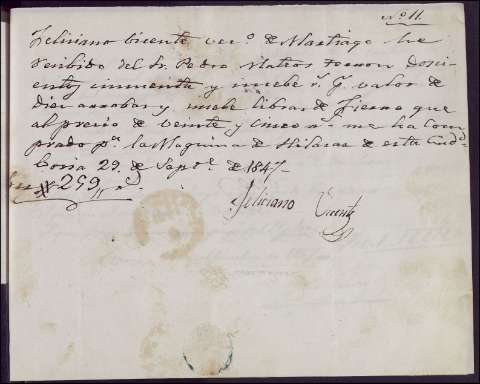 Nº 11.
Feliciano Vicente vecº de Martiago he
recibido del Sr. Pedro Mateos dosci-
entos cincuenta y nuebe rˢ y valor de
diez arrobas y nuebe libras de fierro que
al precio de veinte y cinco rˢ me ha com
prado pª la Maquina de Hilazas de esta Ciudᵈ
Coria 29 de Sepᵉ de 1847-
259 rˢ
Feliciano Vicente